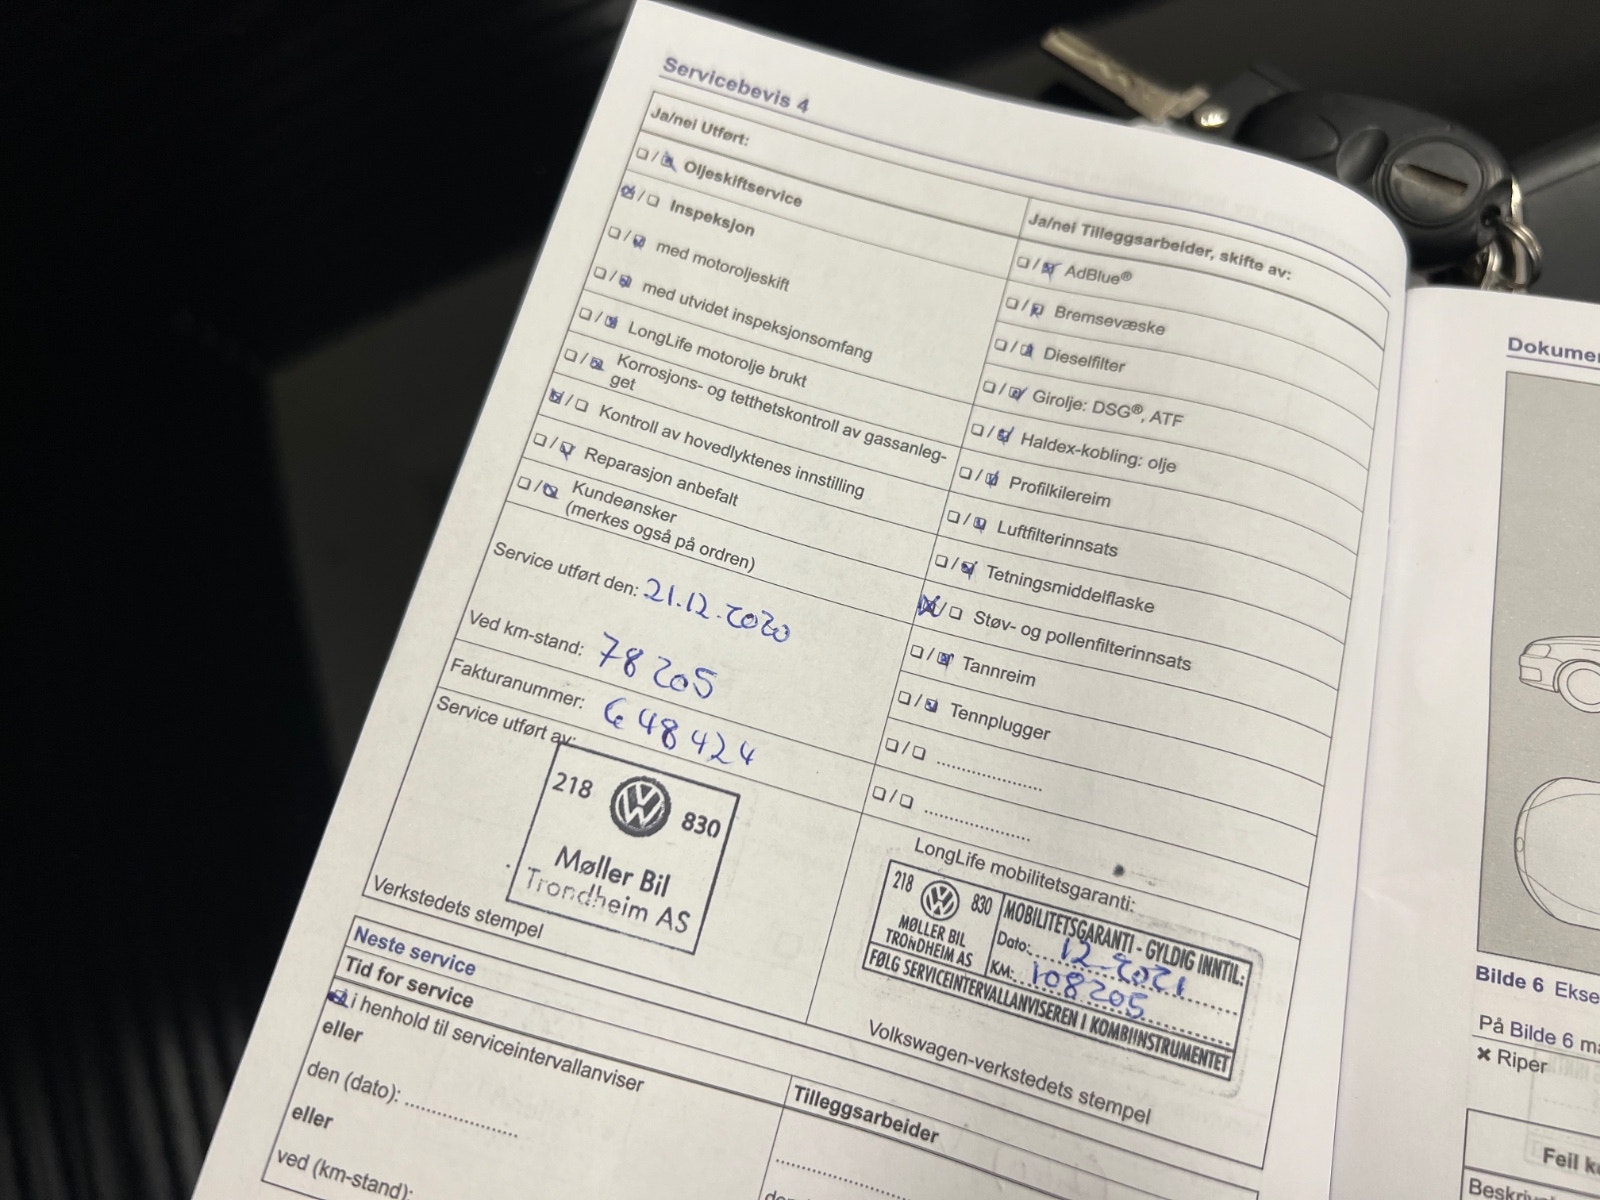 Servicebevis 4
Ja/nei Utført:
❏ / ❏ Oljeskiftservice
❏ / ❏ Inspeksjon
❏ / ❏ med motoroljeskift
❏ / ❏ med utvidet inspeksjonsomfang
❏ / ❏ LongLife motorolje brukt
❏ / ❏ Korrosjons- og tetthetskontroll av gassanleg-
get
❏ / ❏ Kontroll av hovedlyktenes innstilling
❏ / ❏ Reparasjon anbefalt
❏ / ❏ Kundeønsker
(merkes også på ordren)
Service utført den: 21.12.2020
Ved km-stand: 78205
Fakturanummer: 648424
Service utført av:
218 830
Møller Bil
Trondheim AS
Verkstedets stempel
Ja/nei Tilleggsarbeider, skifte av:
❏ / ❏ AdBlue®
❏ / ❏ Bremsevæske
❏ / ❏ Dieselfilter
❏ / ❏ Girolje: DSG®, ATF
❏ / ❏ Haldex-kobling: olje
❏ / ❏ Profilkilereim
❏ / ❏ Luftfilterinnsats
❏ / ❏ Tetningsmiddelflaske
❏ / ❏ Støv- og pollenfilterinnsats
❏ / ❏ Tannreim
❏ / ❏ Tennplugger
❏ / ❏ ....................
❏ / ❏ ....................
LongLife mobilitetsgaranti:
218 830
MØLLER BIL
TRONDHEIM AS
MOBILITETSGARANTI - GYLDIG INNTIL:
Dato: 12-2021
KM: 108205
FØLG SERVICEINTERVALLANVISEREN I KOMBIINSTRUMENTET
Volkswagen-verkstedets stempel
Neste service
Tid for service
❏ i henhold til serviceintervallanviser
eller
den (dato): ....................
eller
ved (km-stand):
Tilleggsarbeider
....................
Bilde 6
På Bilde 6
✖ Riper
Feil